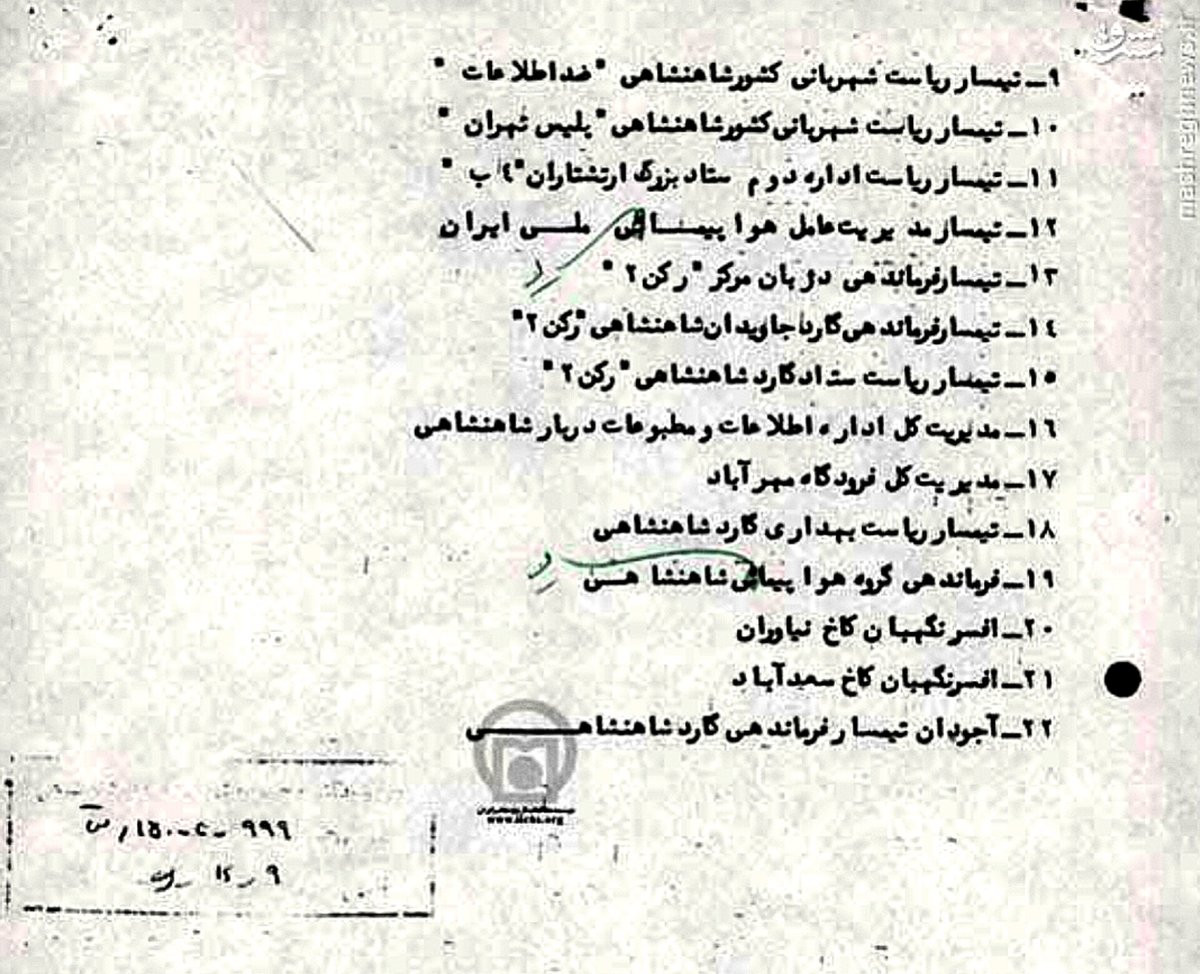 ۹ــ تیمسار ریاست شهربانی کشور شاهنشاهی "ضد اطلاعات"
۱۰ــ تیمسار ریاست شهربانی کشور شاهنشاهی "پلیس تهران"
۱۱ــ تیمسار ریاست اداره دوم ستاد بزرگ ارتشتاران "٤ ب"
۱۲ــ تیمسار مدیریت عامل هواپیمائی ملی ایران
۱۳ــ تیمسار فرماندهی دژبان مرکز "رکن ۲"
۱٤ــ تیمسار فرماندهی گارد جاویدان شاهنشاهی "رکن ۲"
۱۵ــ تیمسار ریاست ستاد گارد شاهنشاهی "رکن ۲"
۱٦ــ مدیریت کل اداره اطلاعات و مطبوعات دربار شاهنشاهی
۱۷ــ مدیریت کل فرودگاه مهرآباد
۱۸ــ تیمسار ریاست بهداری گارد شاهنشاهی
۱۹ــ فرماندهی گروه هواپیمائی شاهنشاهی
۲۰ــ افسر نگهبان کاخ نیاوران
۲۱ــ افسر نگهبان کاخ سعدآباد
۲۲ــ آجودان تیمسار فرماندهی گارد شاهنشاهی
مشرق
mashreghnews.ir
www.iichs.org